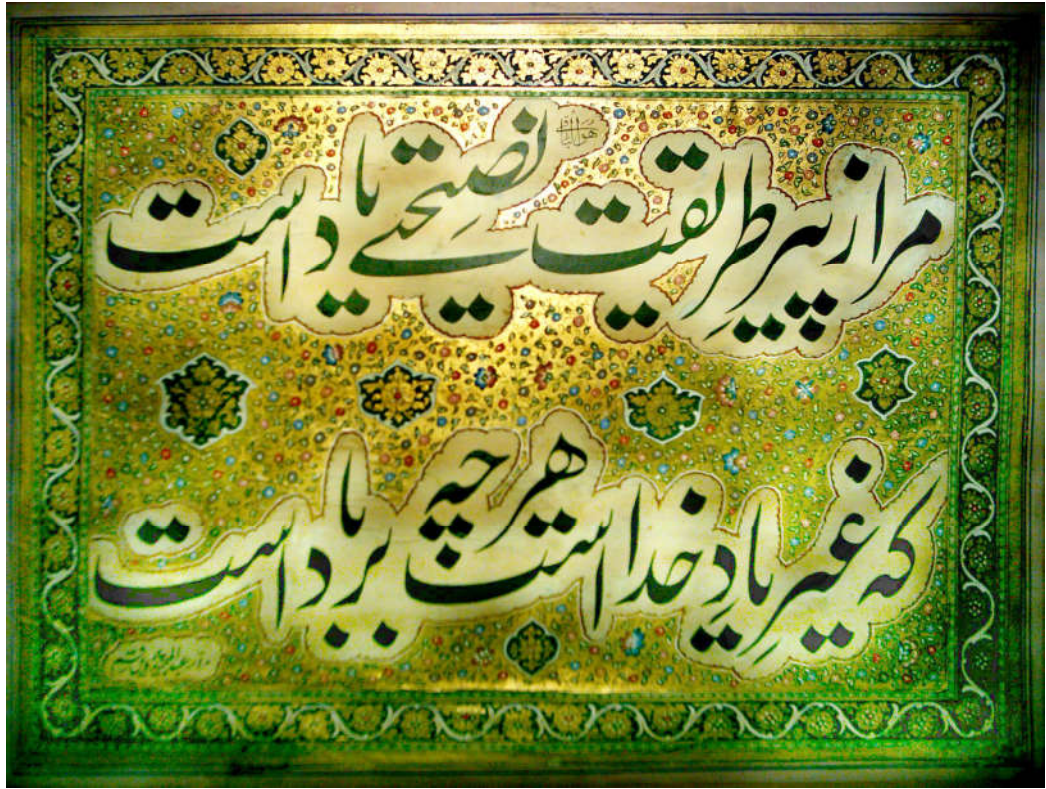 مرا از پیر طریقت نصیحتی یاد است
که غیرِ یادِ خدا است هر چه بر باد است